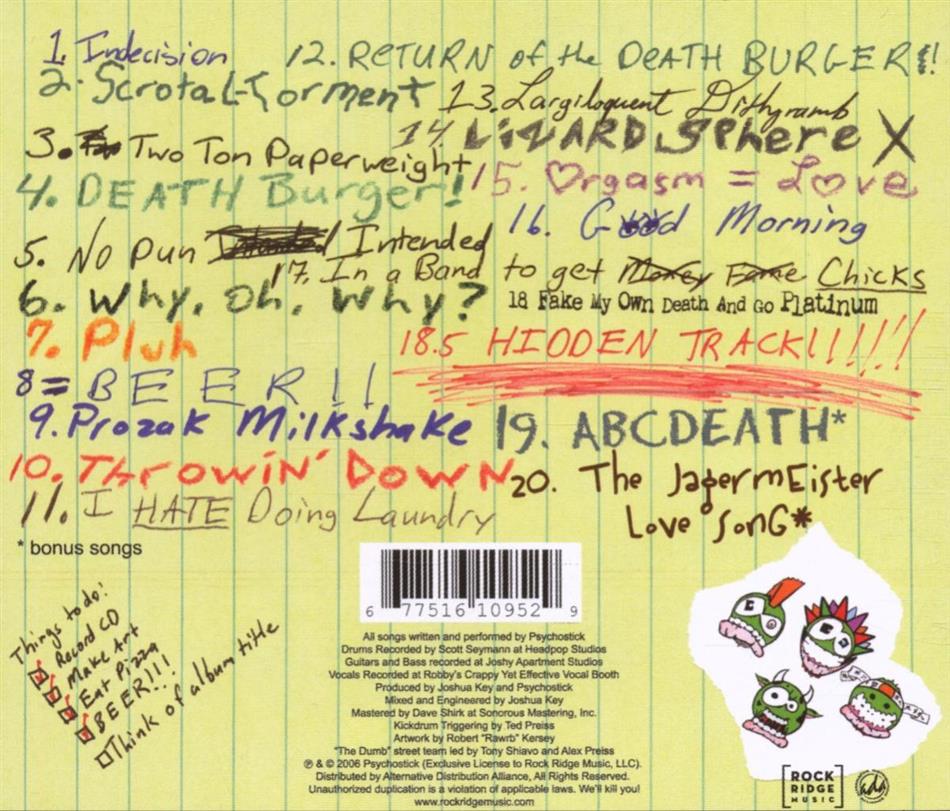 1. Indecision
2. Scrotal-Torment
3. Two Ton Paperweight
4. DEATH Burger!
5. No Pun Intended Intended
6. Why, oh, why?
7. Pluh
8= BEER!!
9. Prozak Milkshake
10. THROWIN' DOWN
11. I HATE Doing Laundry
12. RETURN of the DEATH BURGER!!
13. Largiloquent Dithyramb
14 LiZARD Sphere X
15. Orgasm = Love
16. Good Morning
17. In a Band to get Money Fame Chicks
18 Fake My Own Death And Go Platinum
18.5 HIDDEN TRACK!!!!!!
19. ABCDEATH*
20. The JagermEister
Love SonG*
* bonus songs
Things to do!
Record CD
Make Art
Eat Pizza
BEER!!!
Think of album title
6 77516 10952 9
All songs written and performed by Psychostick
Drums Recorded by Scott Seymann at Headpop Studios
Guitars and Bass recorded at Joshy Apartment Studios
Vocals Recorded at Robby's Crappy Yet Effective Vocal Booth
Produced by Joshua Key and Psychostick
Mixed and Engineered by Joshua Key
Mastered by Dave Shirk at Sonorous Mastering, Inc.
Kickdrum Triggering by Ted Preiss
Artwork by Robert "Rawrb" Kersey
"The Dumb" street team led by Tony Shiavo and Alex Preiss
℗ & © 2006 Psychostick (Exclusive License to Rock Ridge Music, LLC).
Distributed by Alternative Distribution Alliance, All Rights Reserved.
Unauthorized duplication is a violation of applicable laws. We'll kill you!
www.rockridgemusic.com
ROCK
RIDGE
MUSIC